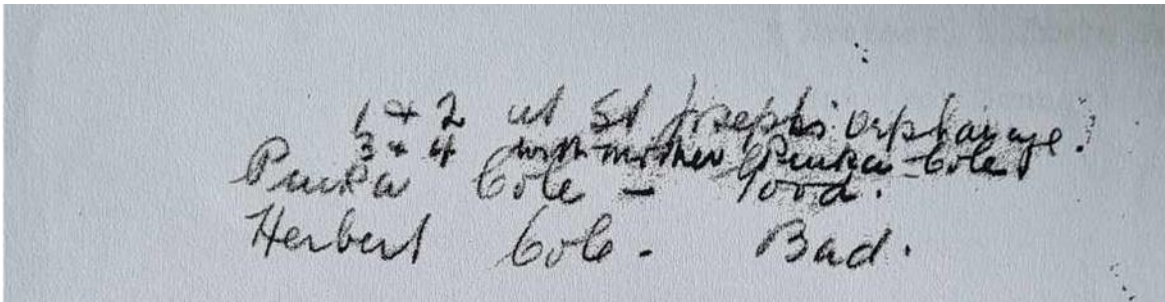 1 + 2 at St Joseph's orphanage.
3 + 4 with mother (Punka Cole)
Punka Cole - Good.
Herbert Cole - Bad.